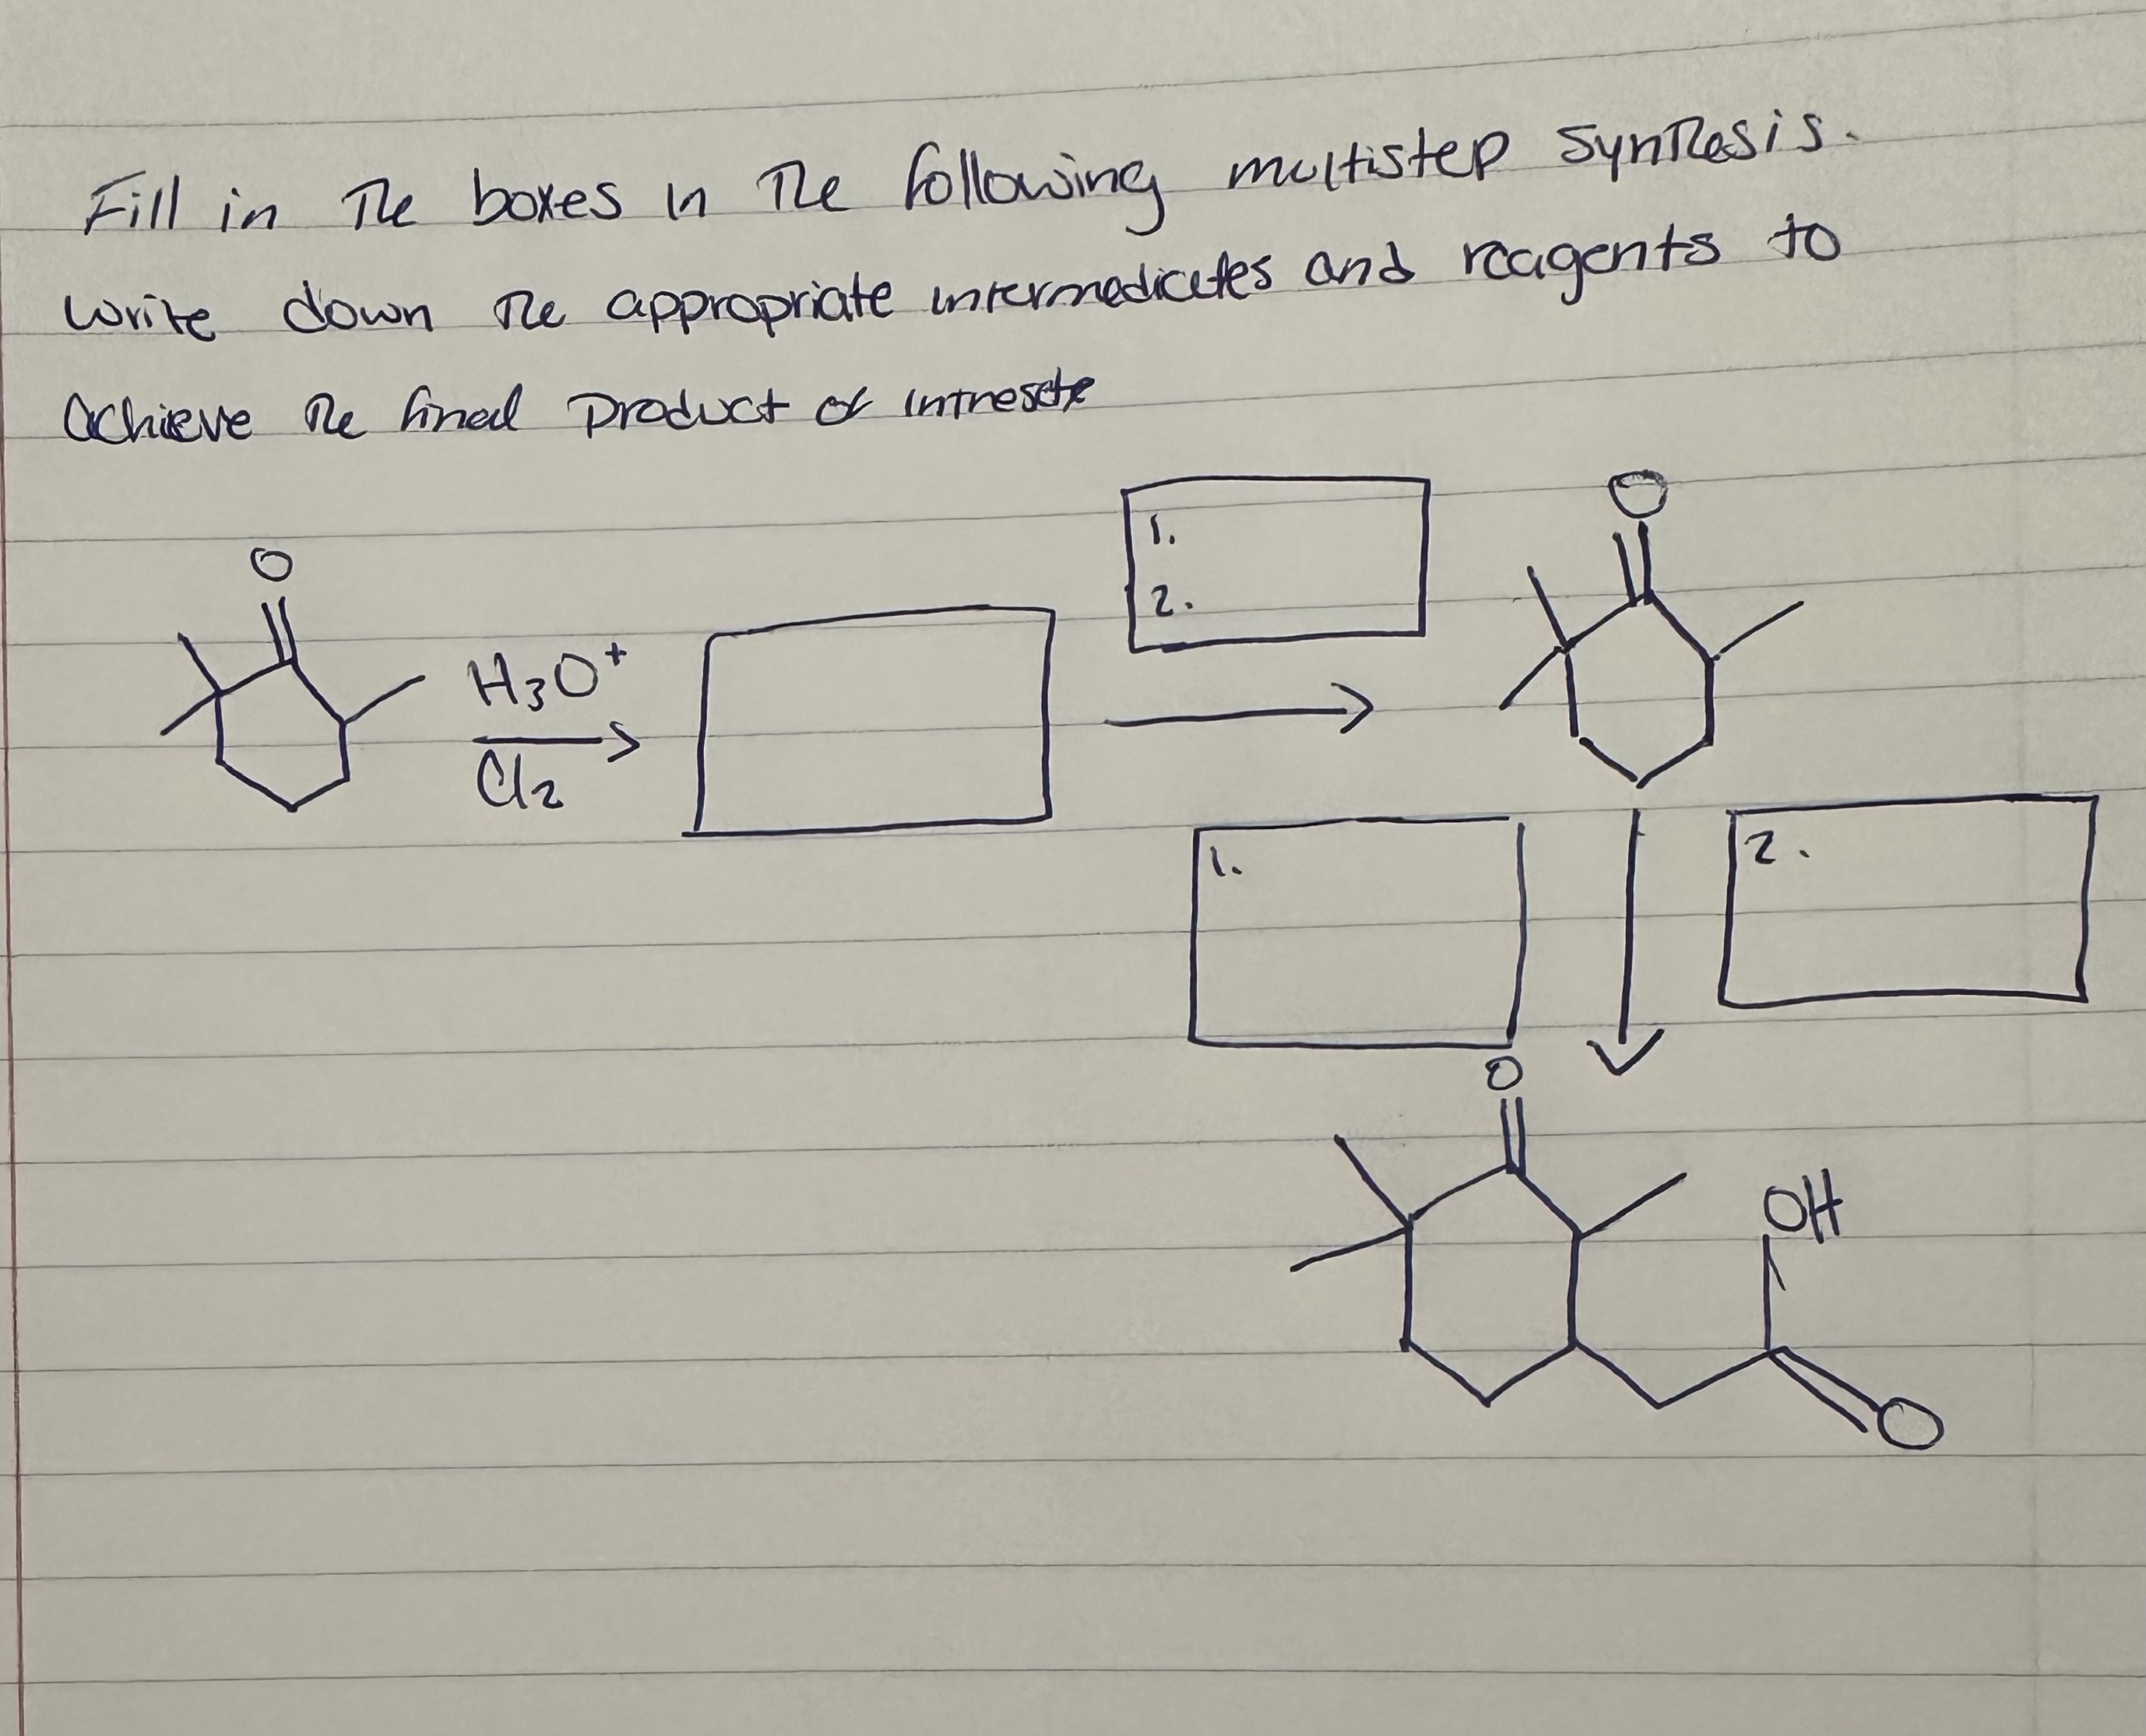 Fill in The boxes in The following multistep synthesis.
write down The appropriate intermedicetes and reagents to
achieve The final product of intresete
O
O
1.
2.
H3O+
Cl2
1.
2.
O
OH
O